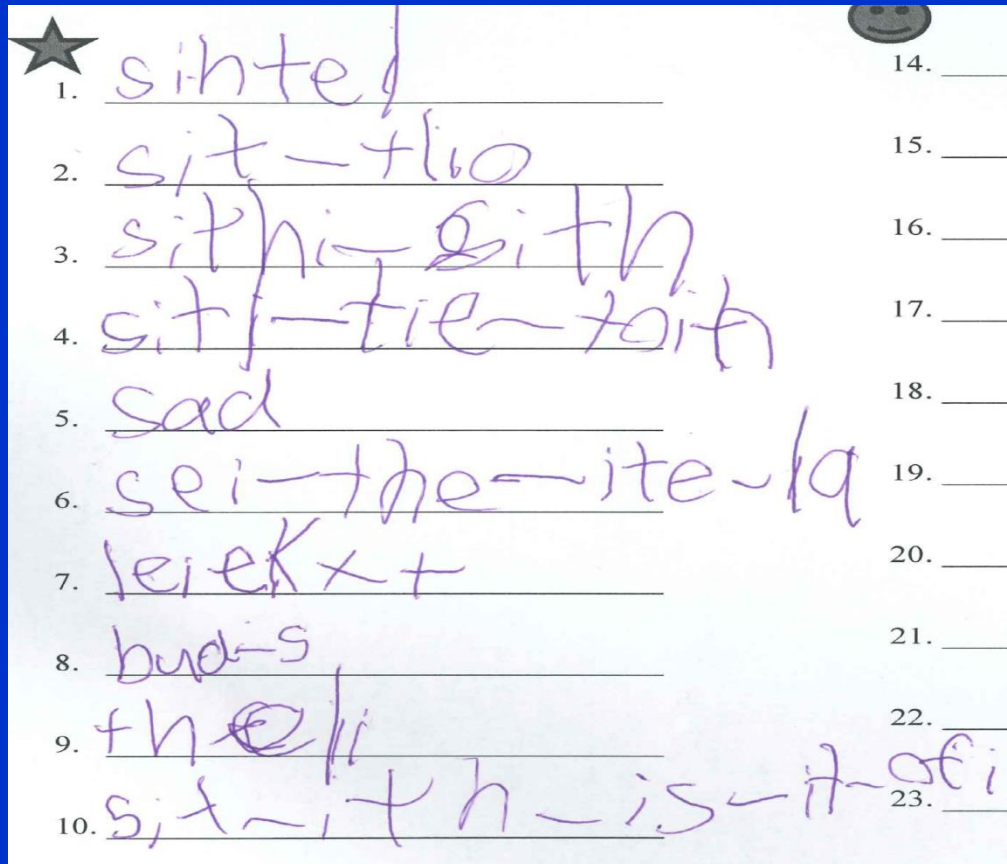 1. sihtel
2. sit-tlio
3. sithi-sith
4. sitl-tie-toith
5. sad
6. sei-the-ite-la
7. leiek x +
8. bud-s
9. the li
10. sit-ith-is-it-ofi
14.
15.
16.
17.
18.
19.
20.
21.
22.
23.